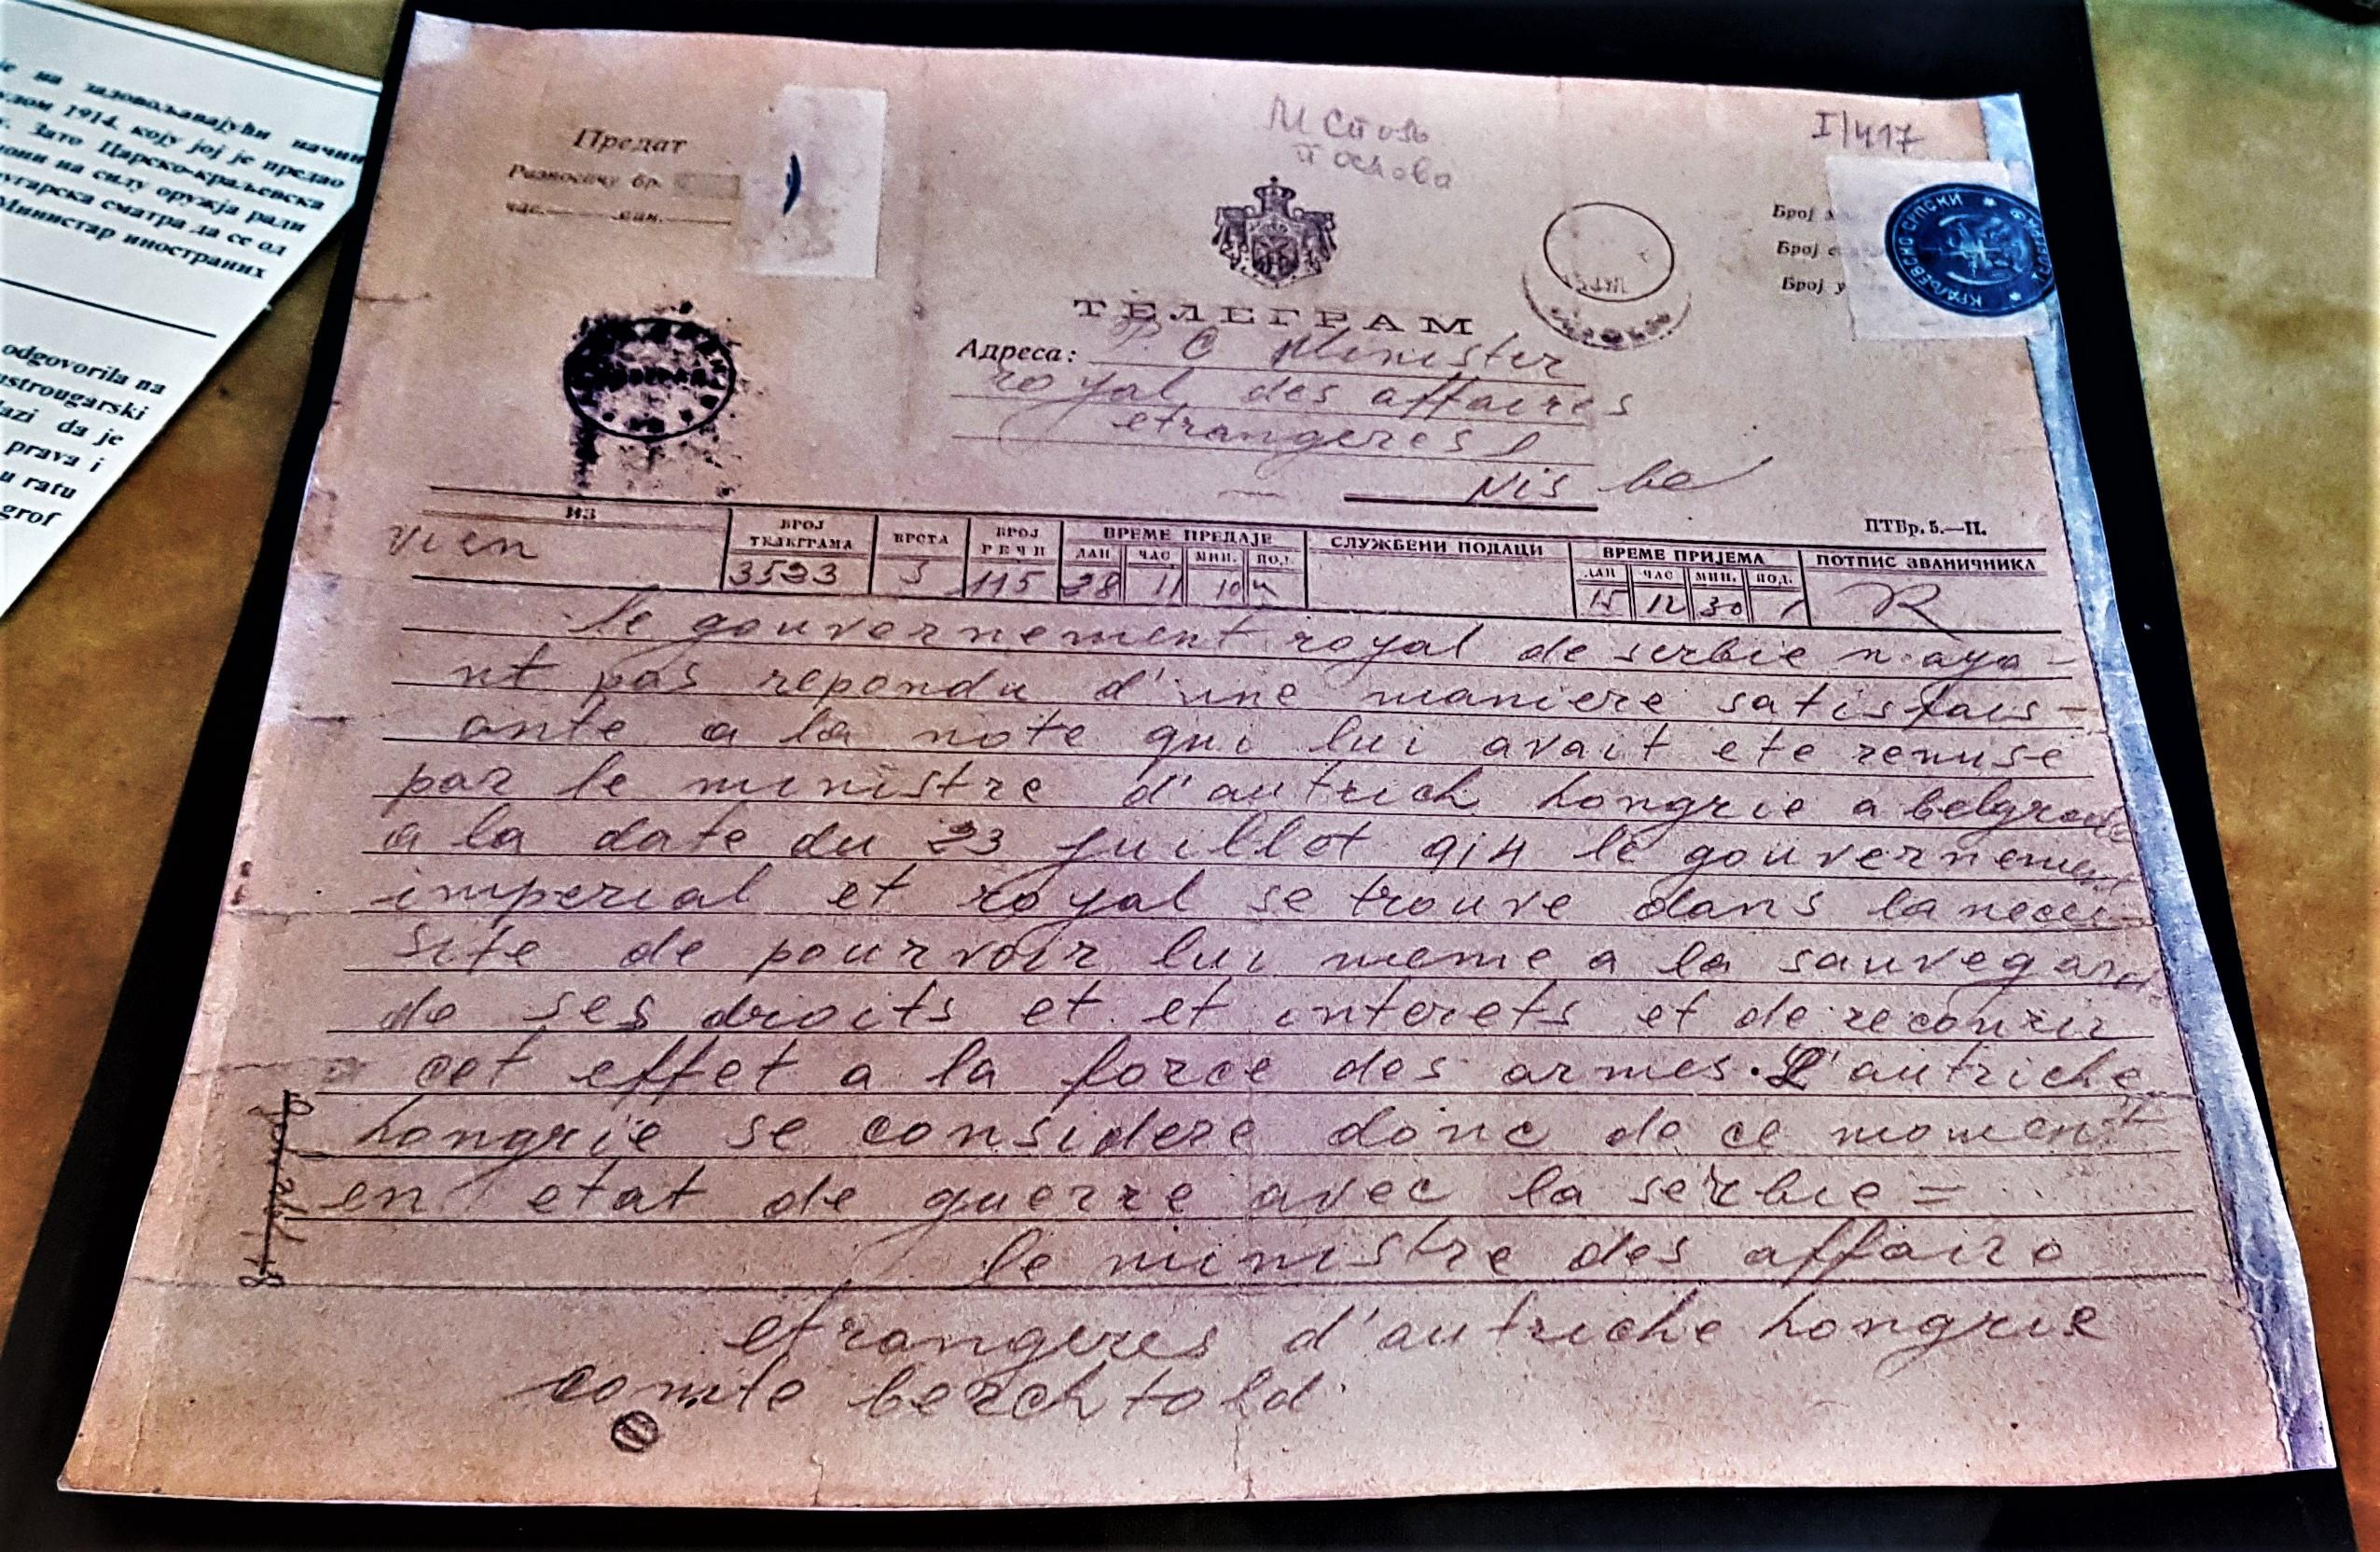 је на задовољавајући начин
1914. коју јој је предао
Зато Царско-краљевска
на силу оружја ради
сматра да се од
Министар иностраних
odgovorila na
da je
prava i
u ratu
grof
Предат
Разносачу бр.
час. сан.
I/417
Број
Број
Број у
КРАЉЕВСКО СРПСКИ
ТЕЛЕГРАМ
Адреса: C Minister
royal des affaires
etrangeres
Nis
ПТБр. 5.—II.
ИЗ
БРОЈ ТЕЛЕГРАМА
ВРСТА
БРОЈ РЕЧИ
ВРЕМЕ ПРЕДАЈЕ
ДАН ЧАС МИН. ПОД.
СЛУЖБЕНИ ПОДАЦИ
ВРЕМЕ ПРИЈЕМА
ДАН ЧАС МИН. ПОД.
ПОТПИС ЗВАНИЧНИКА
Vien 3523 115 28 11 10 15 12 30 R
le gouvernement royal de serbie n aya-
nt pas repondu d'une maniere satisfais-
ante a la note qui lui avait ete remise
par le ministre d'autrich hongrie a belgrade
a la date du 23 juillot 914 le gouvernement
imperial et royal se trouve dans la neces-
site de pourvoir lui meme a la sauvegard
de ses droits et et interets et de recourir
a cet effet a la force des armes. L'autriche
hongrie se considere donc de ce moment
en etat de guerre avec la serbie =
le ministre des affaire
etrangeres d'autriche hongrie
comte berchtold